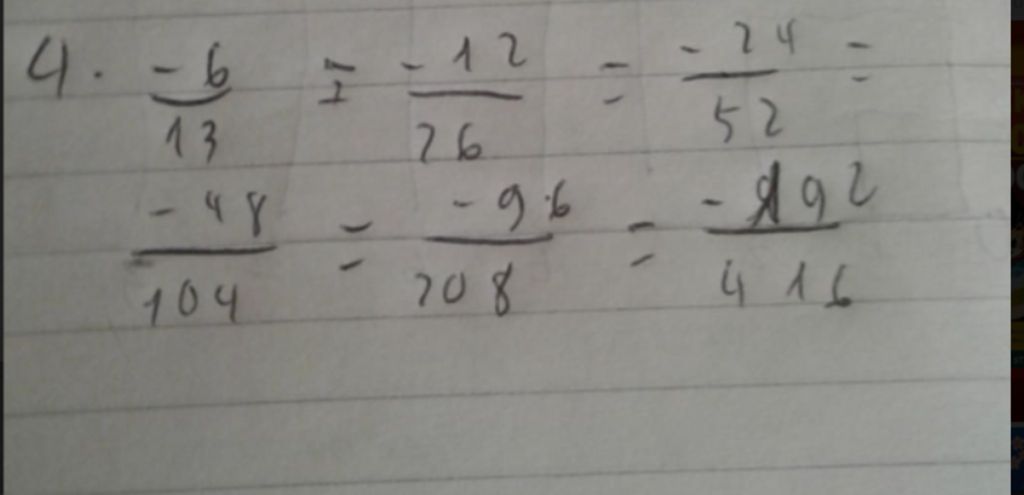 4. -6/13 = -12/26 = -24/52 =
-48/104 = -96/208 = -192/416